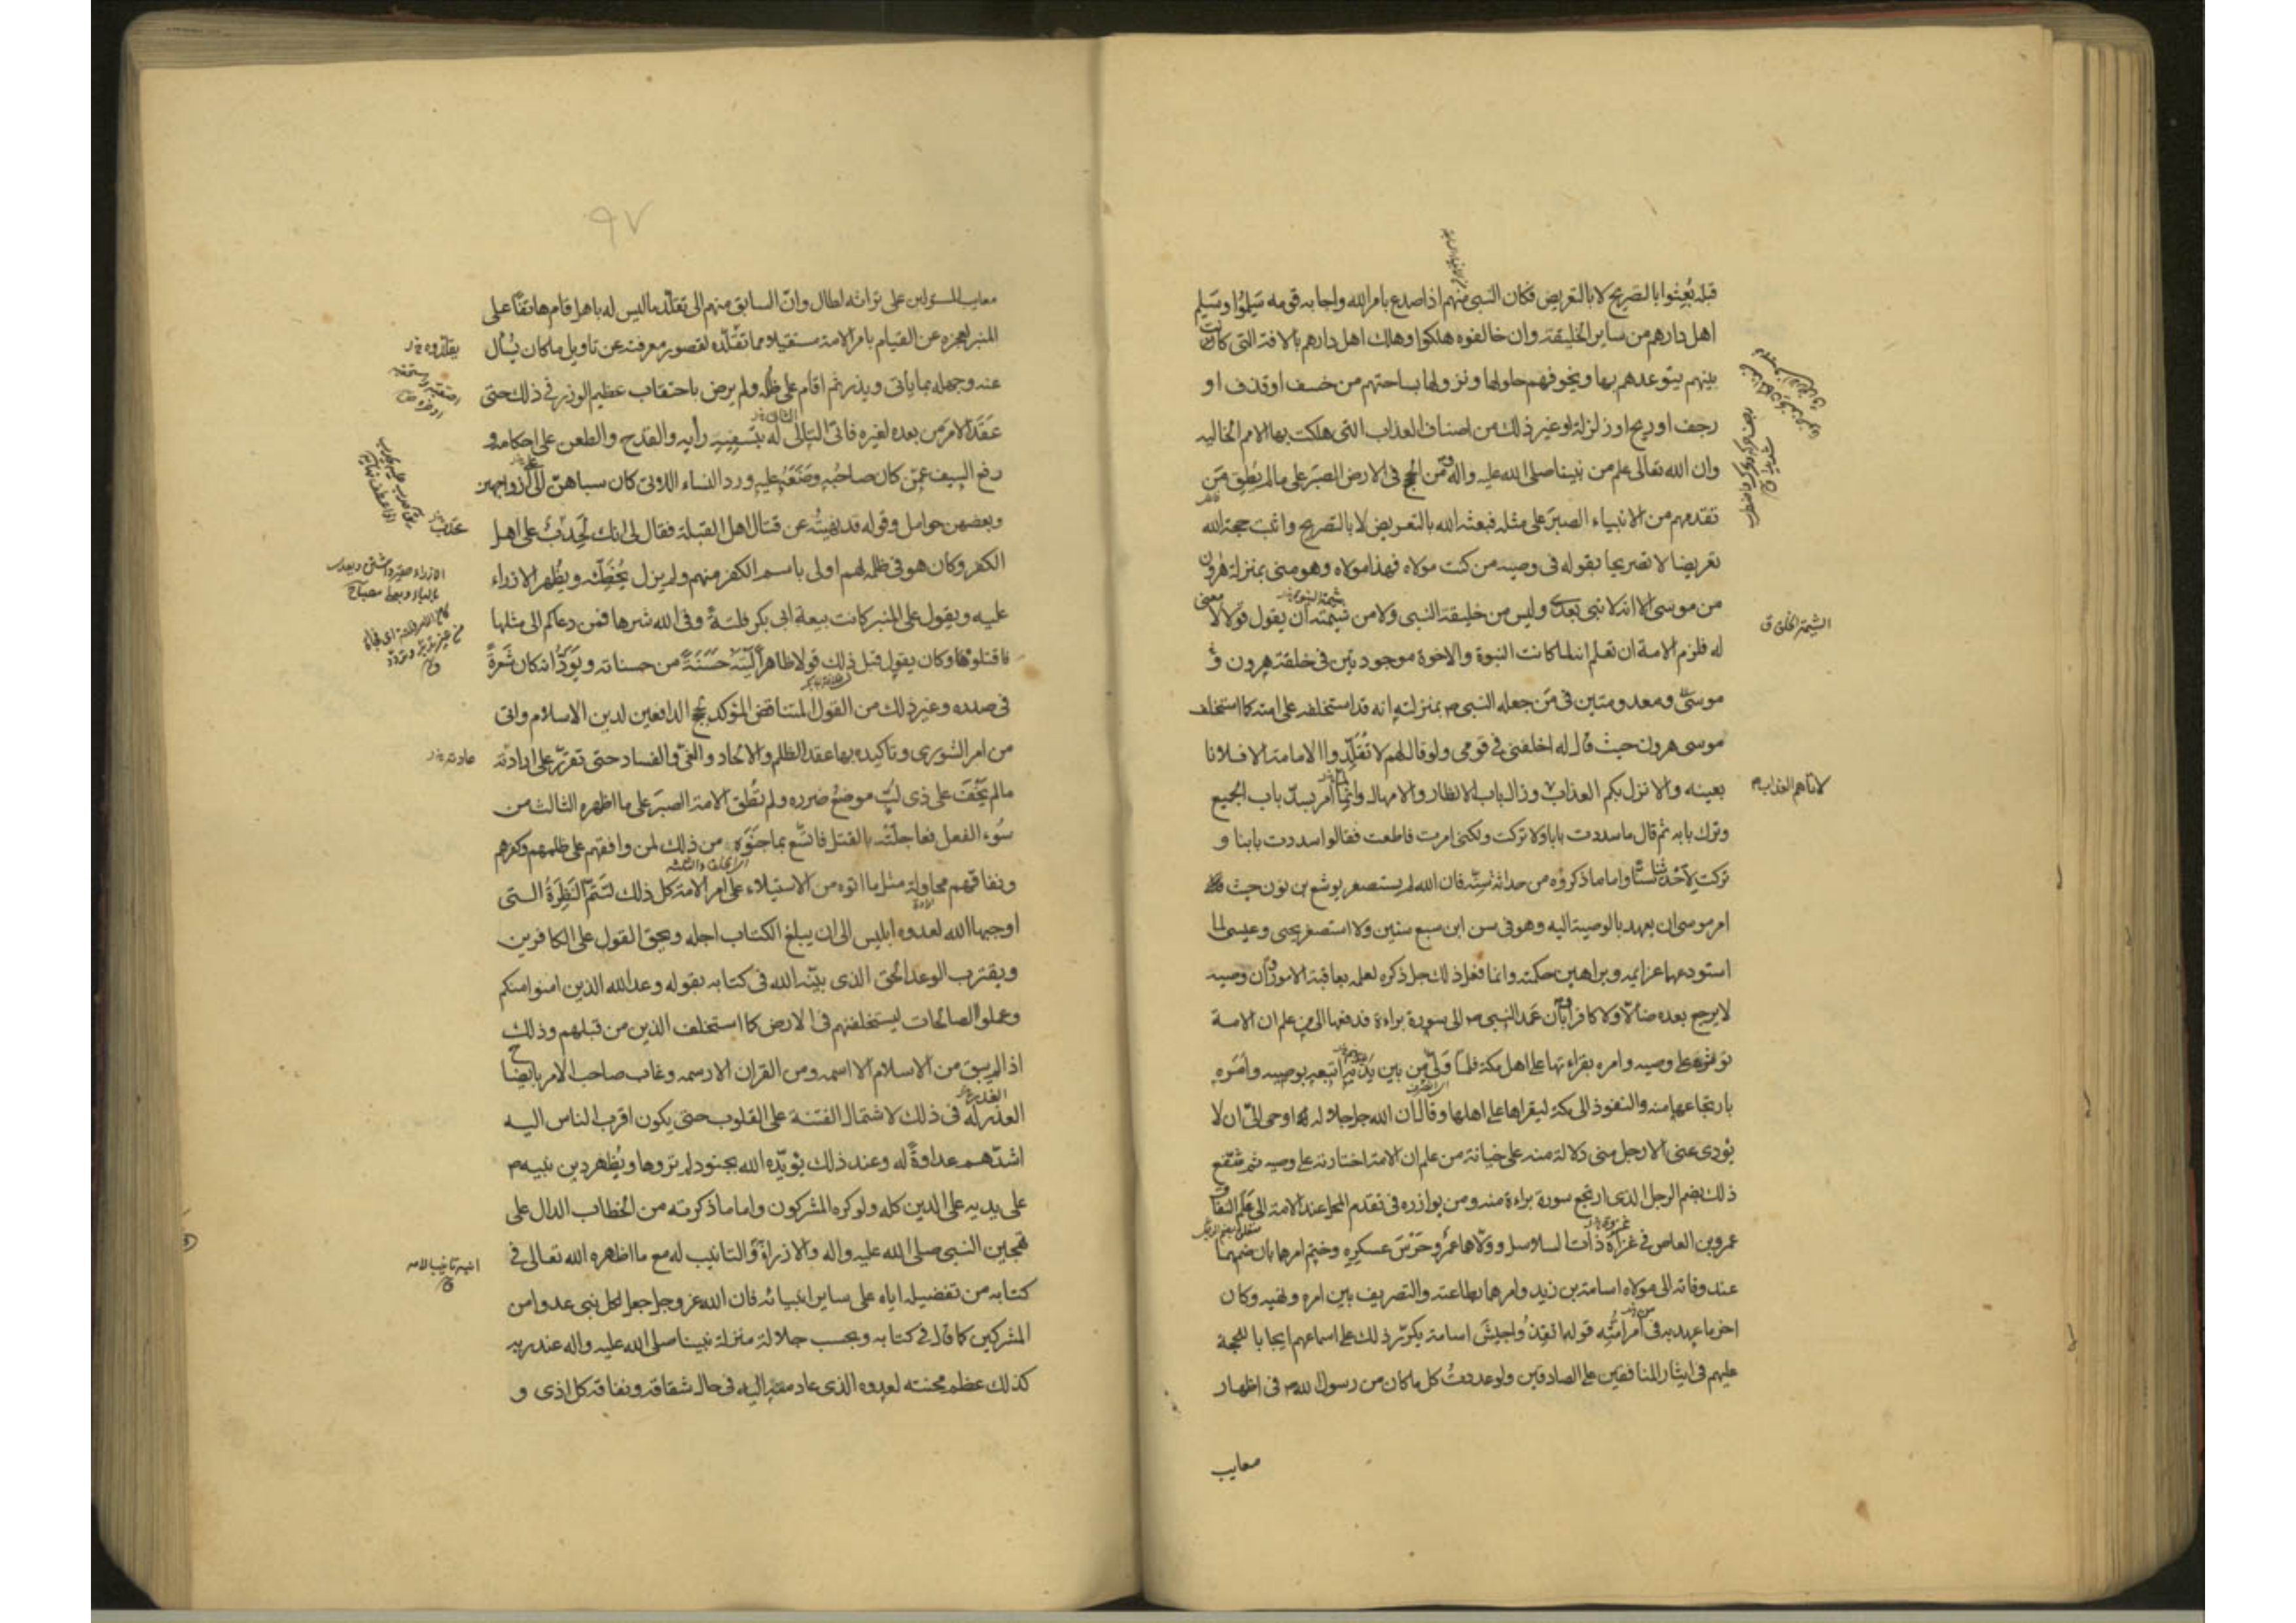 قبله بُعِثوا بالتصريح لا بالتعريض فكان النبى منهم اذا صدع بامر الله واجابه قومه سَلِمُوا وسَلِم
اهل دارهم من ساير الخليقة وان خالفوه هلكوا وهلك اهل دارهم بالافة التى كانت
بينهم يتوعدهم بها ويخوفهم حلولها ونزولها بساحتهم من خسف او قذف او
رجف او ريح او زلزلة او غير ذلك من اصناف العذاب التى هلكت بها الامم الخاليه
وان الله تعالى علم من نبينا صلى الله عليه واله ومن الحجج فى الارض الصبَر على ما لم يُطِق مَن
تقدمهم من الانبياء الصبَر على مثله فبعثه الله بالتعريض لا بالتصريح واثبت حجة الله
تعريضا لا تصريحا بقوله فى وصيه من كنت مولاه فهذا مولاه وهو منى بمنزلة هرون
من موسى الا انه لا نبى بعدى وليس من خليقة النبى ولا من شيمته ان يقول قولا لا معنى
له فلزم الامة ان تعلم انه لما كانت النبوة والاخوة موجودتين فى خلقة هرون و
موسى ومعدومتين فى مَن جعله النبى م بمنزلته انه قد استخلفه على امته كما استخلف
موسى هرون حيث قال له اخلفنى فى قومى ولو قال لهم لا تُقَلِّدوا الامامة الا فلانا
بعينه والا نزل بكم العذاب وزال باب الانظار والامهال وانما امر بسد باب الجميع
وترك بابه ثم قال ما سددت بابا ولا تركت ولكنى امرت فاطعت فقالوا سددت بابنا و
تركت لِاَحْدَثنا سنّا واما ما ذكروه من حداثة سِنّه فان الله لم يستصغر يوشع بن نون حيث
امر موسى ان يعهد بالوصية اليه وهو فى سن ابن سبع سنين ولا استصغر يحيى وعيسى لما
استودعهما عزايمه وبراهين حكمته وانما فعل ذلك جل ذكره لعلمه بعاقبة الامور وان وصيه
لا يرجع بعده ضالّا ولا كافرا وبان عَمَد النبى م الى سورة براءة فدفعها الى من علم ان الامة
توثره على وصيه وامره بقراءتها على اهل مكة فلما ولّى من بين يَدَيه اتبعه بوصيه وامَره
بارتجاعها منه والنفوذ الى مكة ليقراها على اهلها وقال ان الله جل جلاله اوحى الىّ ان لا
يؤدى عنى الا رجل منى دلالة منه على خيانة من علم ان الامة اختارته على وصيه ثم شفع
ذلك بضم الرجل الذى ارتجع سورة براءة منه ومن يوازره فى تقدم المحل عند الامة الى عَلَم النفاق
عمرو بن العاص فى غزاة ذات السلاسل وولاهما عمرو حَرْسَ عسكره وختم امرهما بان ضمهما
عند وفاته الى مولاه اسامة بن زيد وامرهما بطاعته والتصريف بين امره ونهيه وكان
اخر ما عهد به فى امر امّته قوله انفِذُوا جيشَ اسامة يكرّر ذلك على اسماعهم ايجابا للحجة
عليهم فى ايثار المنافقين على الصادقين ولو عددتُ كل ما كان من رسول الله م فى اظهار
معايب
الشيمة الخلق ق
لاتاهم العذاب م
٩٧
معايب المستولين على تراثه لطال وانّ السابق منهم الى تقلّد ما ليس له باهل قام هاتفًا على
المنبر لعجزه عن القيام بامر الامة مستقيلا مما تقلّده لقصور معرفته عن تاويل ما كان يُسأل
عنه وجهله بما ياتى ويذر ثم اقام على ظلمه ولم يرض باحتقاب عظيم الوزر فى ذلك حتى
عَقَدَ الامر من بعده لغيره فاتى التالى له بتسفيه رأيه والقدح والطعن على احكامه و
رفع السيف عمّن كان صاحبُه وضَعَهُ عليه ورد النساء اللاوتى كان سباهنّ الى ازواجهن
وبعضهن حوامل وقوله قد نهيتُه عن قتال اهل القبلة فقال لى انك لَحَدِبٌ على اهل
الكفر وكان هو فى ظلمه لهم اولى باسم الكفر منهم ولم يزل يُخَطِّئه ويُظهر الازراء
عليه ويقول على المنبر كانت بيعة ابى بكر فلتةً وقى الله شرها فمن دعاكم الى مثلها
فاقتلوه وكان يقول قبل ذلك قولا ظاهراً لَيْتَه حَسَنَةٌ من حسناته ويَوَدُّ انه كان شَعرةً
فى صدره وغير ذلك من القول المتناقض المؤكد لحجج الدافعين لدين الاسلام واتى
من امر الشورى وتاكيده بها عقد الظلم والالحاد والغىّ والفساد حتى تقرّر على ارادته
ما لم يَخْفَ على ذى لُبّ موضعُ ضرره ولم تُطِق الامة الصبَر على ما اظهره الثالث من
سُوء الفعل فعاجلَتْه بالقتل فاتسع بما جَنَوْه من ذلك لمن وافقهم على ظلمهم وكفرهم
ونفاقهم محاولة مثل ما اتوه من الاستيلاء على امر الامة كل ذلك لتَتمّ النَظِرَةُ التى
اوجبها الله لعدوه ابليس الى ان يبلغ الكتاب اجله ويحق القول على الكافرين
ويقترب الوعد الحق الذى بيّنه الله فى كتابه بقوله وعد الله الذين امنوا منكم
وعملوا الصالحات ليستخلفنهم فى الارض كما استخلف الذين من قبلهم وذلك
اذا لم يبق من الاسلام الا اسمه ومن القران الا رسمه وغاب صاحب الامر بايضاح
العذر له فى ذلك لاشتمال الفتنة على القلوب حتى يكون اقرب الناس اليه
اشدّهم عداوةً له وعند ذلك يؤيّده الله بجنود لم تروها ويُظهر دين نبيه م
على يديه على الدين كله ولو كره المشركون واما ما ذكرته من الخطاب الدال على
تهجين النبى صلى الله عليه واله والازراء والتانيب له مع ما اظهره الله تعالى فى
كتابه من تفضيله اياه على ساير انبيائه فان الله عز وجل جعل لكل نبى عدوا من
المشركين كما قال فى كتابه وبحسب جلالة منزلة نبينا صلى الله عليه واله عند ربه
كذلك عظم محنته لعدوه الذى عاد منه اليه فى حال شقاقه ونفاقه كل اذى و